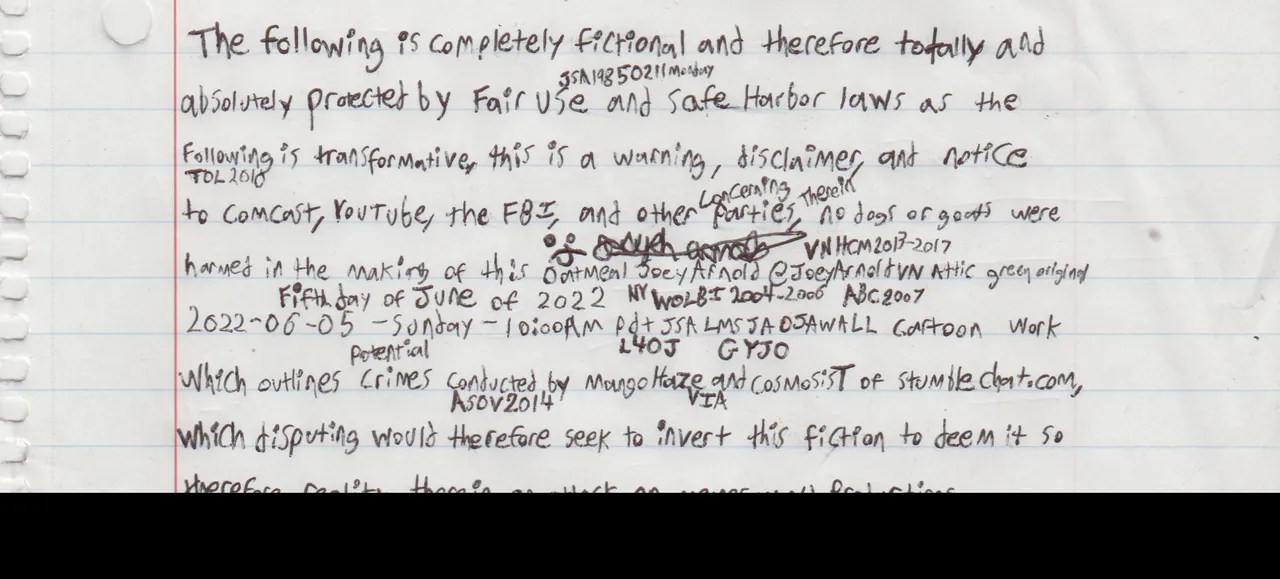 The following is completely fictional and therefore totally and
JSA19850211Monday
absolutely protected by Fair use and safe Harbor laws as the
Following is transformative, this is a warning, disclaimer, and notice
TOL2010
Concerning Therein
to Comcast, YouTube, the FBI, and other parties, no dogs or goats were
VNHCM2013-2017
harmed in the making of this Oatmeal Joey Arnold @JoeyArnoldVN Attic green original
Fifth day of June of 2022 NY WOLBI 2004-2006 ABC2007
2022-06-05 - Sunday - 10:00AM pdt JSA LMS JA OJAWALL Cartoon Work
Potential L4OJ GYJO
Which outlines Crimes conducted by MangoHaze and CosmosisT of stumblechat.com,
ASOV2014 VIA
which disputing would therefore seek to invert this fiction to deem it so